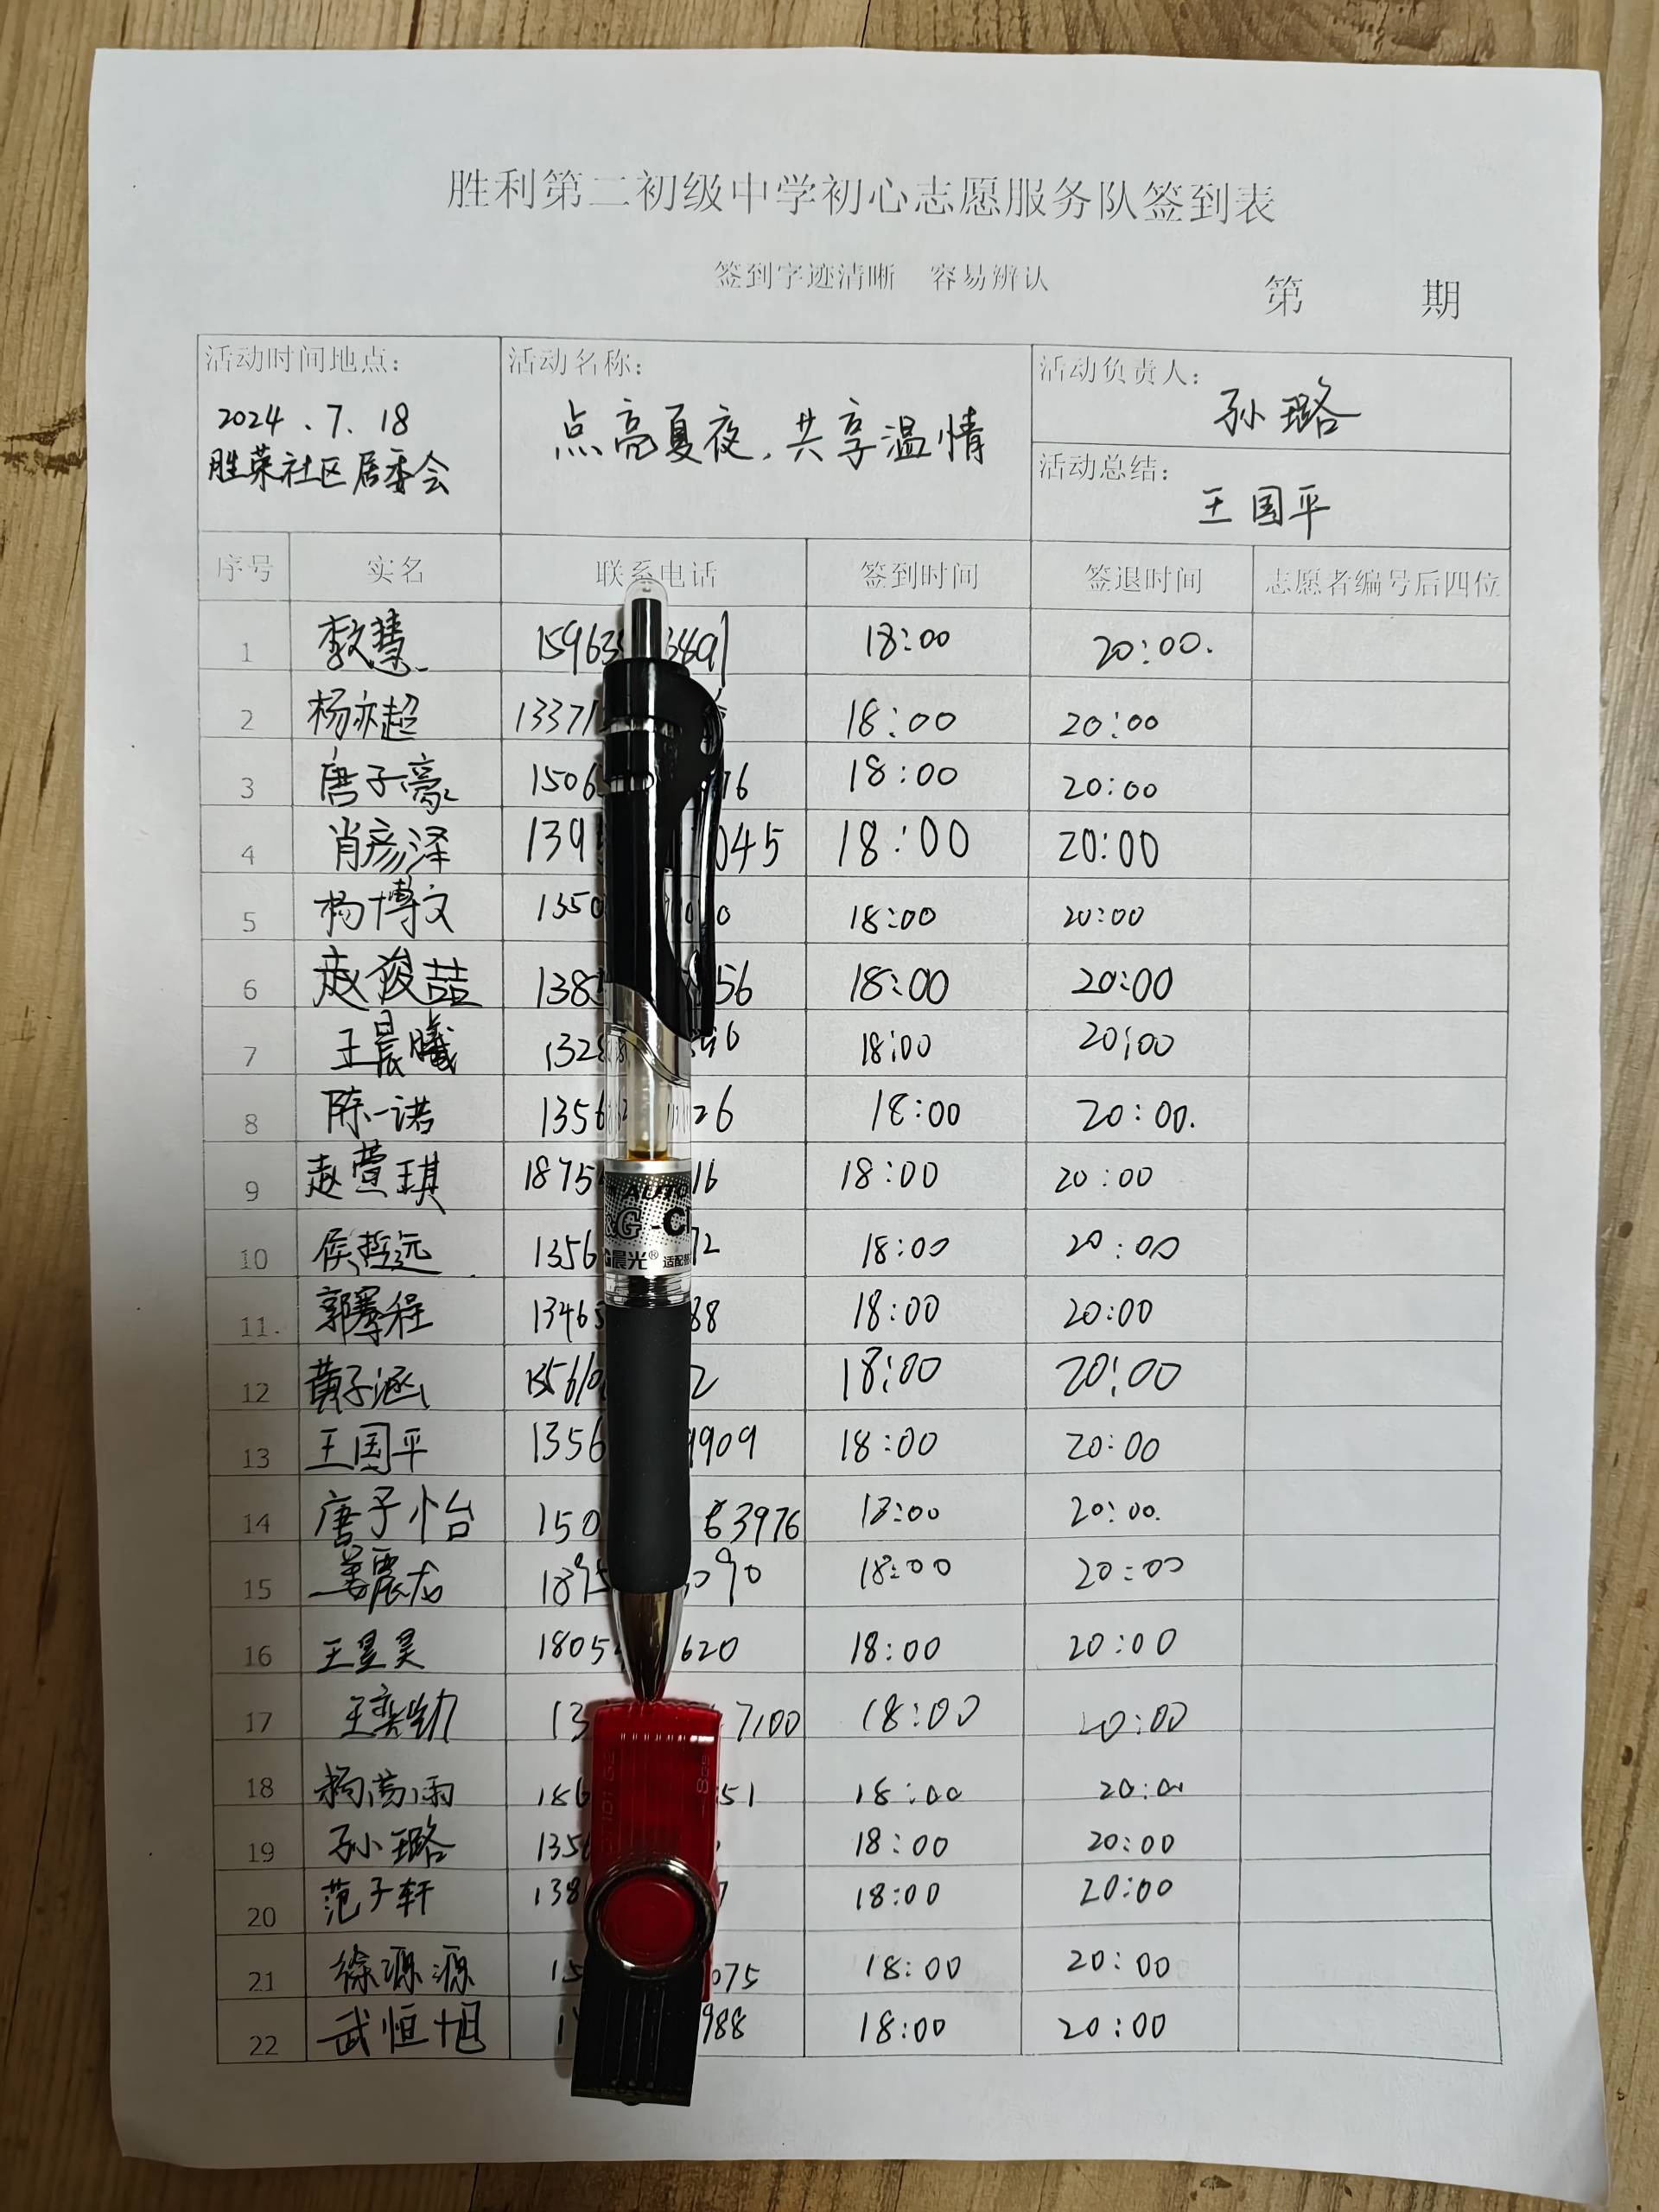 胜利第二初级中学初心志愿服务队签到表
签到字迹清晰 容易辨认
第 期
活动时间地点: 活动名称: 活动负责人:
2024.7.18
胜荣社区居委会
点亮夏夜,共享温情
孙璐
活动总结:
王国平
序号 实名 联系电话 签到时间 签退时间 志愿者编号后四位
1 李文慧 18:00 20:00.
2 杨亦超 18:00 20:00
3 唐子豪 18:00 20:00
4 肖彦泽 045 18:00 20:00
5 杨博文 18:00 20:00
6 赵俊喆 56 18:00 20:00
7 王晨曦 18:00 20:00
8 陈一诺 26 18:00 20:00.
9 赵萱琪 16 18:00 20:00
10 侯哲远 18:00 20:00
11. 18:00 20:00
AUTO
晨光®
12 黄子涵 18:00 20:00
13 王国平 1356 9909 18:00 20:00
14 唐子怡 150 63976 18:00 20:00.
15 姜震龙 18:00 20:00
16 王昱昊 1805 620 18:00 20:00
17 7100 18:00 20:00
18 51 18:00
19 孙璐 18:00 20:00
20 范子轩 18:00 20:00
21 徐源源 075 18:00 20:00
22 武恒旭 988 18:00 20:00